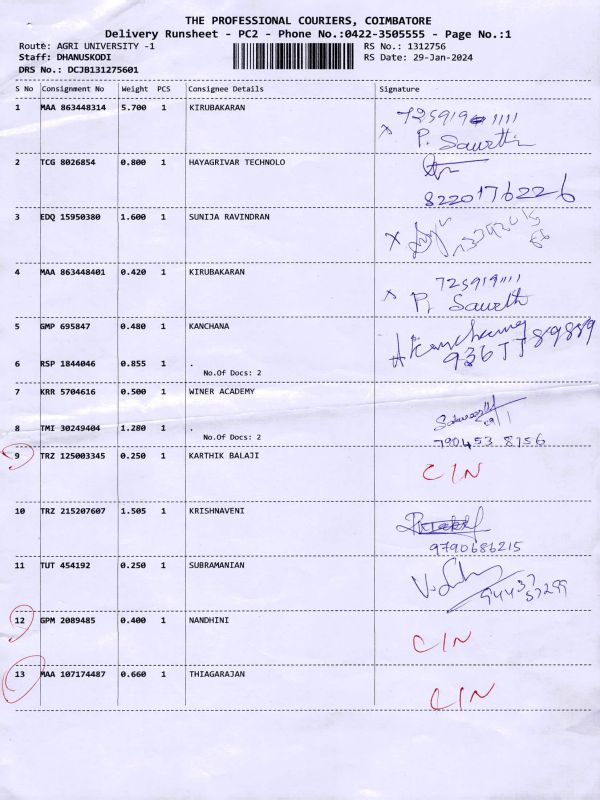 THE PROFESSIONAL COURIERS, COIMBATORE
Delivery Runsheet - PC2 - Phone No.:0422-3505555 - Page No.:1
Route: AGRI UNIVERSITY -1 RS No.: 1312756
Staff: DHANUSKODI RS Date: 29-Jan-2024
DRS No.: DCJB131275601
S No Consignment No Weight PCS Consignee Details Signature
1 MAA 863448314 5.700 1 KIRUBAKARAN
x P.
2 TCG 8026854 0.800 1 HAYAGRIVAR TECHNOLO
8220176226
3 EDQ 15950380 1.600 1 SUNIJA RAVINDRAN x
4 MAA 863448401 0.420 1 KIRUBAKARAN 7259191111
x P.
5 GMP 695847 0.480 1 KANCHANA
6 RSP 1844046 0.855 1 .
No.Of Docs: 2
7 KRR 5704616 0.500 1 WINER ACADEMY
8 TMI 30249404 1.280 1 .
No.Of Docs: 2 790453 8756
9 TRZ 125003345 0.250 1 KARTHIK BALAJI CIN
10 TRZ 215207607 1.505 1 KRISHNAVENI
9790686215
11 TUT 454192 0.250 1 SUBRAMANIAN
12 GPM 2089485 0.400 1 NANDHINI CIN
13 MAA 107174487 0.660 1 THIAGARAJAN CIN